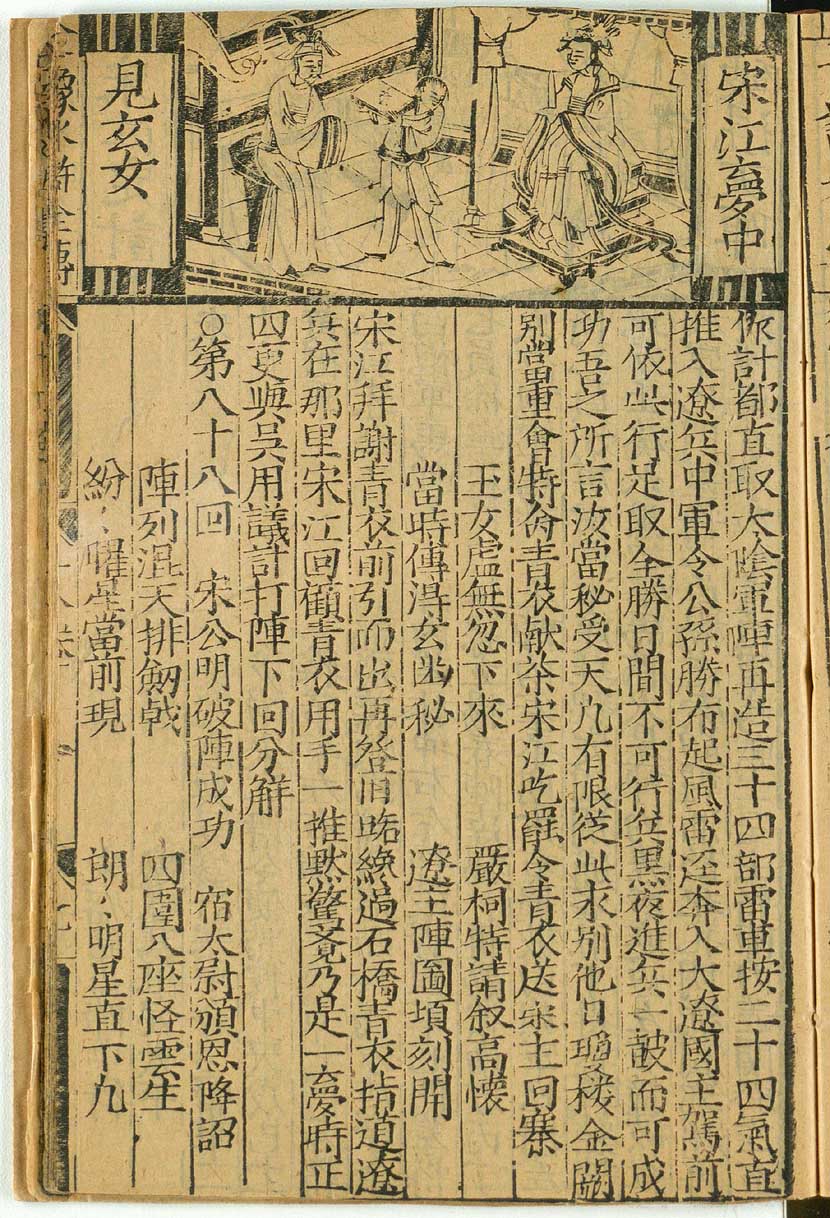 宋江夢中
見玄女
作計都直取太陰軍陣再造二十四部雷車按二十四氣直
推入遼兵中軍令公孫勝布起風雷逕奔入大遼國主駕前
可依此行足取全勝日間不可行兵黑夜進兵一皷而可成
功吾之所言汝當秘受天凡有限從此求別他日瓊樓金闕
別當重會特命青衣献茶宋江吃罷令青衣送宋主回寨
玉女虛無忽下來 嚴祠特請叙高懷
當時傳得玄幽秘 遼主陣圖頃刻開
宋江拜謝青衣前引而出再登旧路繞過石橋青衣指道遼
兵在那里宋江回顧青衣用手一推默驚覺乃是一夢時正
四更與吳用議計打陣下回分觧
○第八十八回 宋公明破陣成功 宿太尉頒恩降詔
陣列混天排劒戟 四圍八座怪雲生
紛〻燿星當前現 朗〻明星直下九
全像水滸全傳